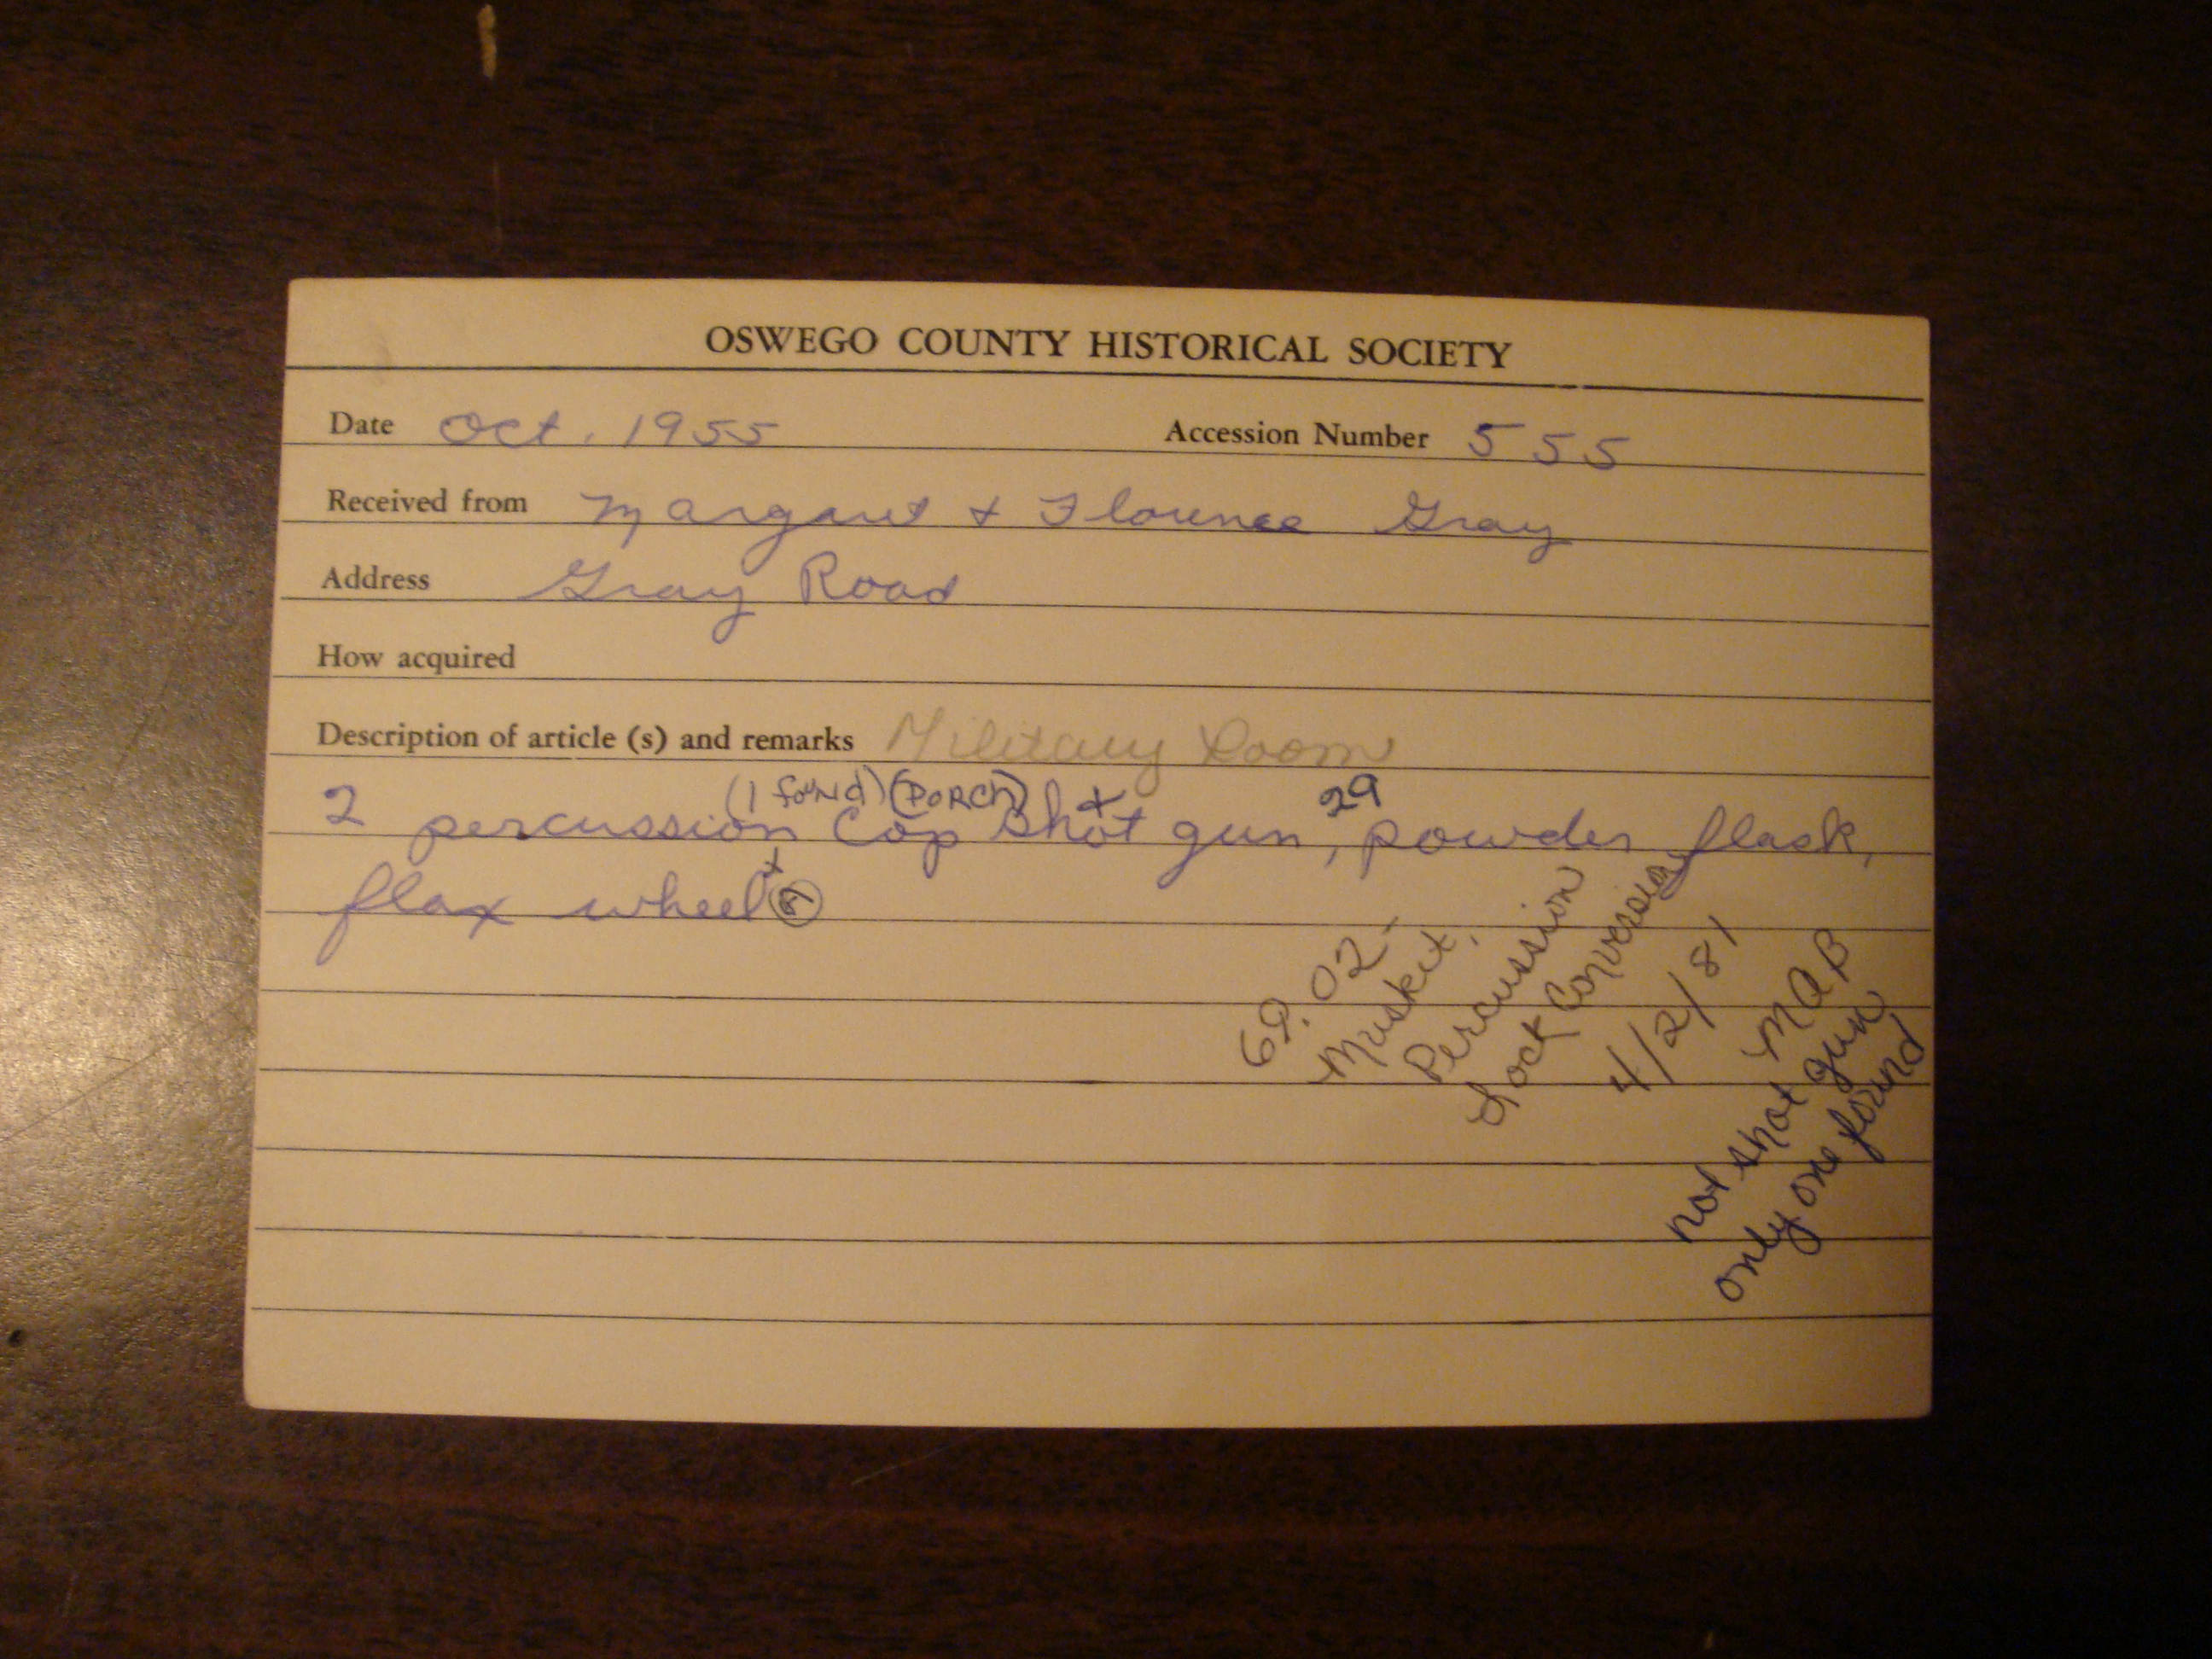 OSWEGO COUNTY HISTORICAL SOCIETY
Date Oct. 1955 Accession Number 555
Received from Margaret + Florence Gray
Address Gray Road
How acquired
Description of article (s) and remarks Military Room
(1 found) (PORCH) x 29
2 percussion cap shot gun, powder flask,
flax wheel x
69.02-
Musket,
Percussion
Lock Conversion
4/2/81
MAB
not shot gun
only one found